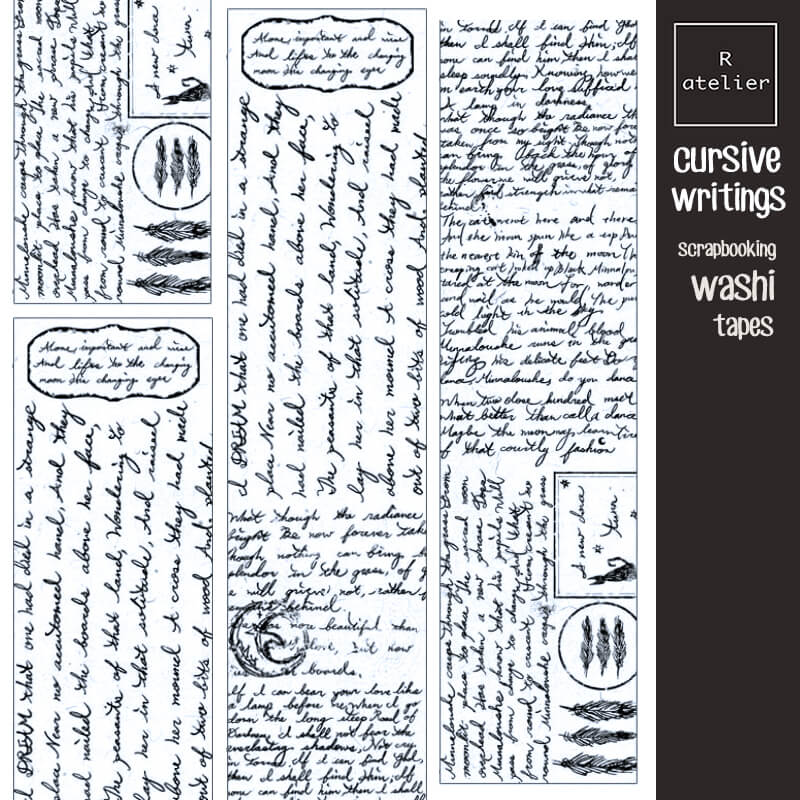 Minnaloushe creeps through the grass From
moonlit place to place The sacred moon
overhead Has taken a new phase Does
Minnaloushe know that his pupils Will
pass from change to change, And What
from round to crescent From crescent so
round Minnaloushe creeps through the grass
A new dance
turn
Alone, important and wise
And lifts to the changing
moon His changing eyes
I DREAM that one had died in a strange
place Near no accustomed hand, And they
had nailed the boards above her face,
The peasants of that land, Wondering to
lay her in that solitude, And raised
above her mound A cross they had made
out of two bits of wood And planted
Alone, important and wise
And lifts to the changing
moon His changing eyes
I DREAM that one had died in a strange
place Near no accustomed hand, And they
had nailed the boards above her face,
The peasants of that land, Wondering to
lay her in that solitude, And raised
above her mound A cross they had made
out of two bits of wood And planted
What though the radiance
bright Be now forever take
though nothing can bring
splendor in the grass, of g
e will grieve not, rather
behind.
now beautiful than
love, but now
boards.
If I can bear your love like
a lamp before me, When I go
down the long steep Road of
Darkness, I shall not fear the
everlasting shadows, Not cry
in Terror. If I can find God,
then I shall find Him; If
one can find him then I shall
in Terror. If I can find God
then I shall find Him; If
one can find him then I shall
sleep soundly, Knowing how we
m earth your love sufficed
A lamp in darkness.
what though the radiance th
was once so bright Be now fore
taken from my sight, Though not
can bring back the hour of
splendor in the grass, of glory
the flower We will grieve not,
rather find strength in what remai
behind;
The cat went here and there
And the moon spun like a top And
the nearest kin of the moon Th
creeping cat looked up Black Minnalou
tared at the moon For, wander
and wail as he would The pure
cold light in the sky
Troubled his animal blood
Minnaloushe runs in the gra
lifting his delicate feet Do
Minnaloushe, do you dance
When two close kindred meet
What better than call a dance
Maybe the moon may learn Tire
of that courtly fashion
Minnaloushe creeps through the grass From
moonlit place to place The sacred moon
overhead Has taken a new phase Does
Minnaloushe know that his pupils Will
pass from change to change, And What
from round to crescent From crescent so
round Minnaloushe creeps through the grass
A new dance
turn
R
atelier
cursive
writings
scrapbooking
washi
tapes